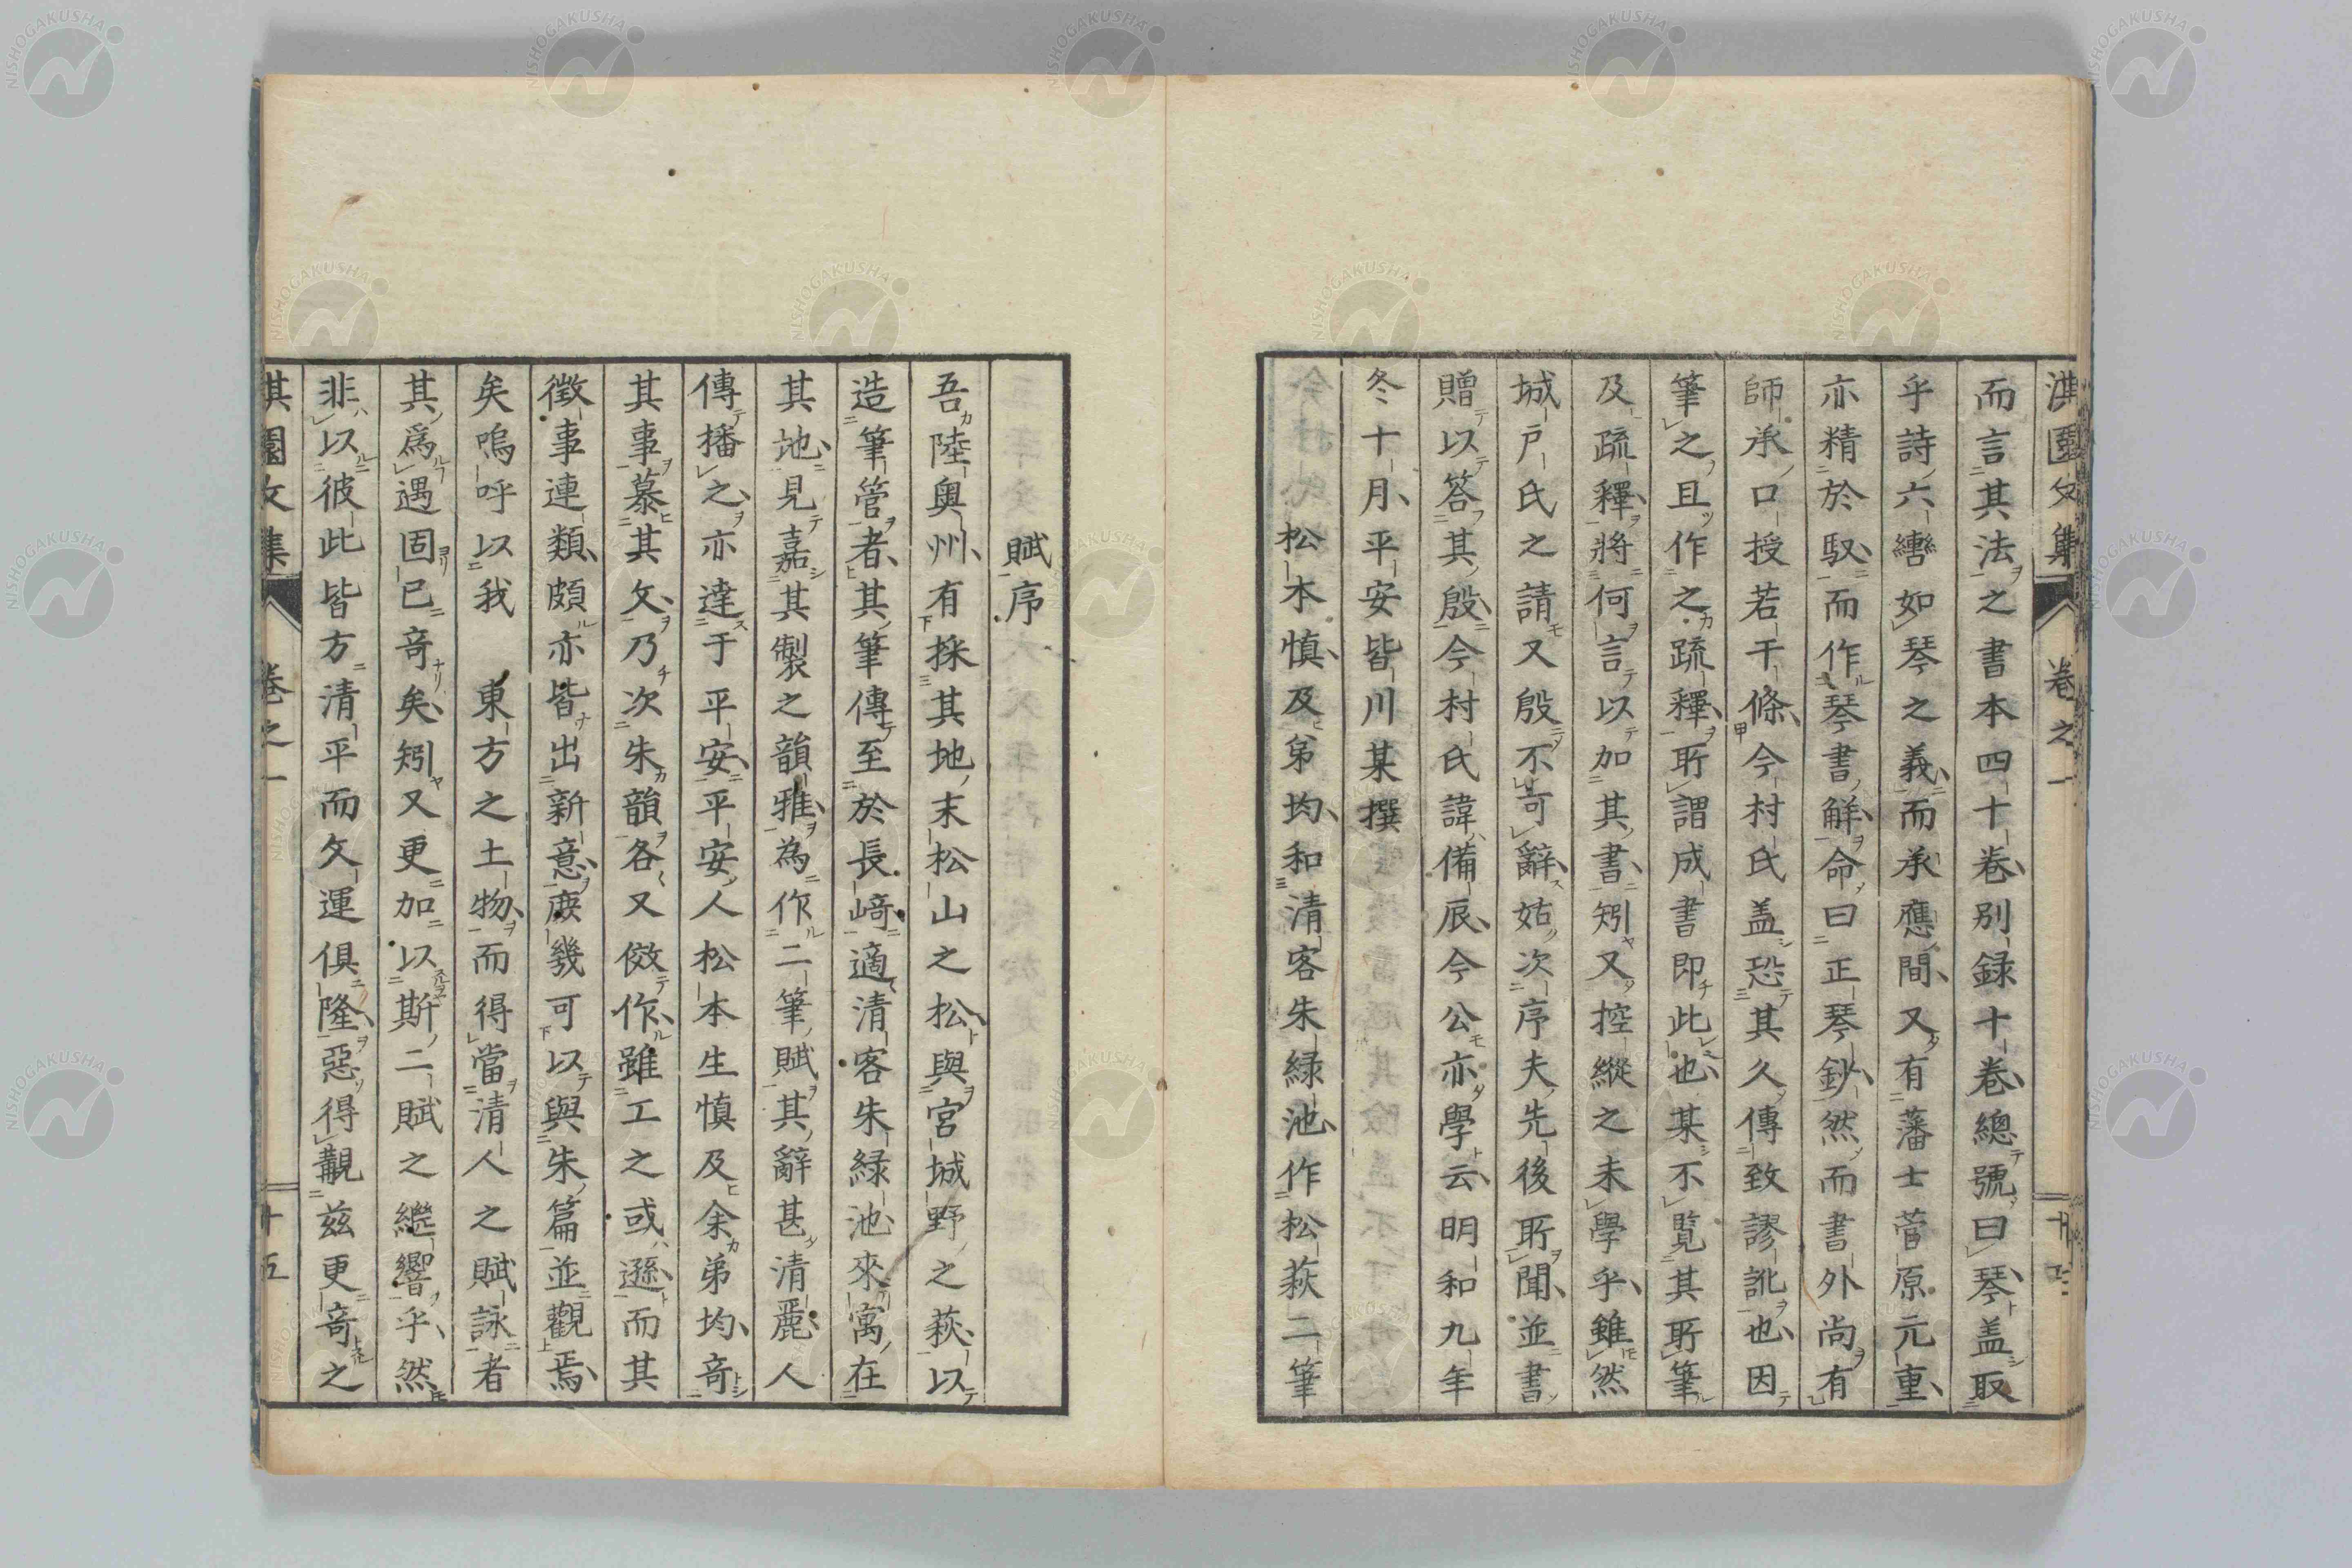 淇園文集 卷之一
而言其法之書本四十卷別録十卷總號曰琴盖取
乎詩六轡如琴之義而承應間又有藩士菅原元重
亦精於馭而作琴書觧命曰正琴鈔然而書外尚有
師承口授若干條今村氏盖恐其久傳致謬訛也因
筆之且作之疏釋所謂成書即此也某不覧其所筆
及疏釋將何言以加其書矧又控縱之未學乎雖然
城戸氏之請又殷不可辭姑次序夫先後所聞並書
贈以答其殷今村氏諱備辰今公亦學云明和九年
冬十月平安皆川某撰
松本慎及弟均和清客朱緑池作松萩二筆
賦序
吾陸奥州有採其地末松山之松與宮城野之萩以
造筆管者其筆傳至於長﨑適清客朱緑池來寓在
其地見嘉其製之韻雅為作二筆賦其辭甚清麗人
傳播之亦達于平安平安人松本生慎及余弟均竒
其事慕其文乃次朱韻各又倣作雖工之或遜而其
徴事連類頗亦皆出新意庻幾可以與朱篇並觀焉
矣嗚呼以我 東方之土物而得當清人之賦詠者
其爲遇固已竒矣矧又更加以斯二賦之繼響乎然
非以彼此皆方清平而文運倶隆惡得覯兹更竒之
淇園文集 卷之一 十五